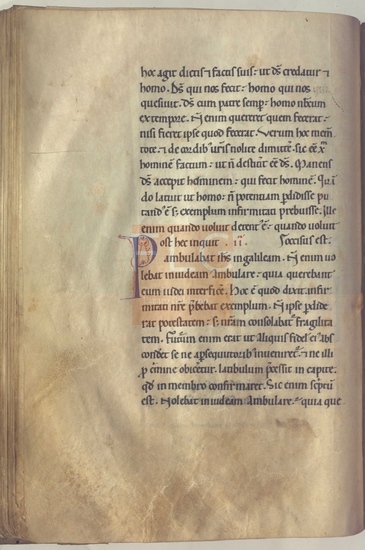 hoc agit dictis ⁊ factis suis: ut ds̄ credatur ⁊
homo. Ds̄ qui nos fecit: homo qui nos
quesiuit. ds̄ cum patre semp̄: homo nobcum
ex tempore. N̄ enim quereret quem fecerat:
nisi fieret ipse quod fecerat. Verum hoc mem̄
tote: ⁊ de cordib; ur̄is nolite dimitt̄e. sic eē xp̄m
hominē factum: ut n̄ destit̄it eē ds̄. Manens
ds̄ accepit hominem: qui fecit hominē. Q̄n
do latuit ut homo: n̄ potentiam p̄didisse pu
tand; ē: s; exemplum infirmitati prebuisse. Ille
enim quando uoluit detent; ē: quando uoluit
occisus est.
Post hec inquit .ii.
ambulabat ih̄s in galileam. N̄ enim uo
lebat in iudeam ambulare: quia querebant
eum iudei int̄ficere. Hoc ē quod dixit. infir
mitati nr̄e p̄bebat exemplum. N̄ ipse p̄dide
rat potestatem: s; nr̄am consolabat̄ fragilita
tem. Futurum enim erat ut aliquis fidel̄ ei; abs
conderet se ne a p̄sequutorib; inueniret̄: ⁊ ne illi
p̄ crimine obiceret̄ latibulum p̄cessit in capite.
qd̄ in membro confirmaret̄. Sic enim scriptū
est. Nolebat in iudeam ambulare: quia que